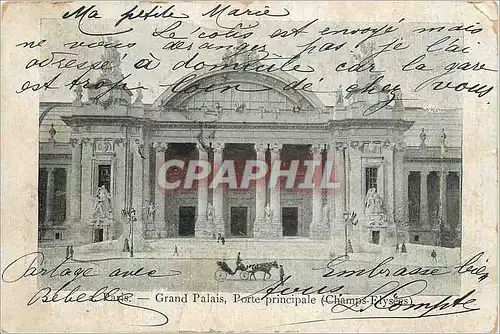 Ma petite Marie
Le colis est envoyé mais
ne vous dérangez pas, je l'ai
adressé à domicile car la gare
est trop loin de chez vous.
CPARAMA
Partage avec Embrasse bien
Rebelle tous LeCompte
Paris. — Grand Palais, Porte principale (Champs-Elysées)